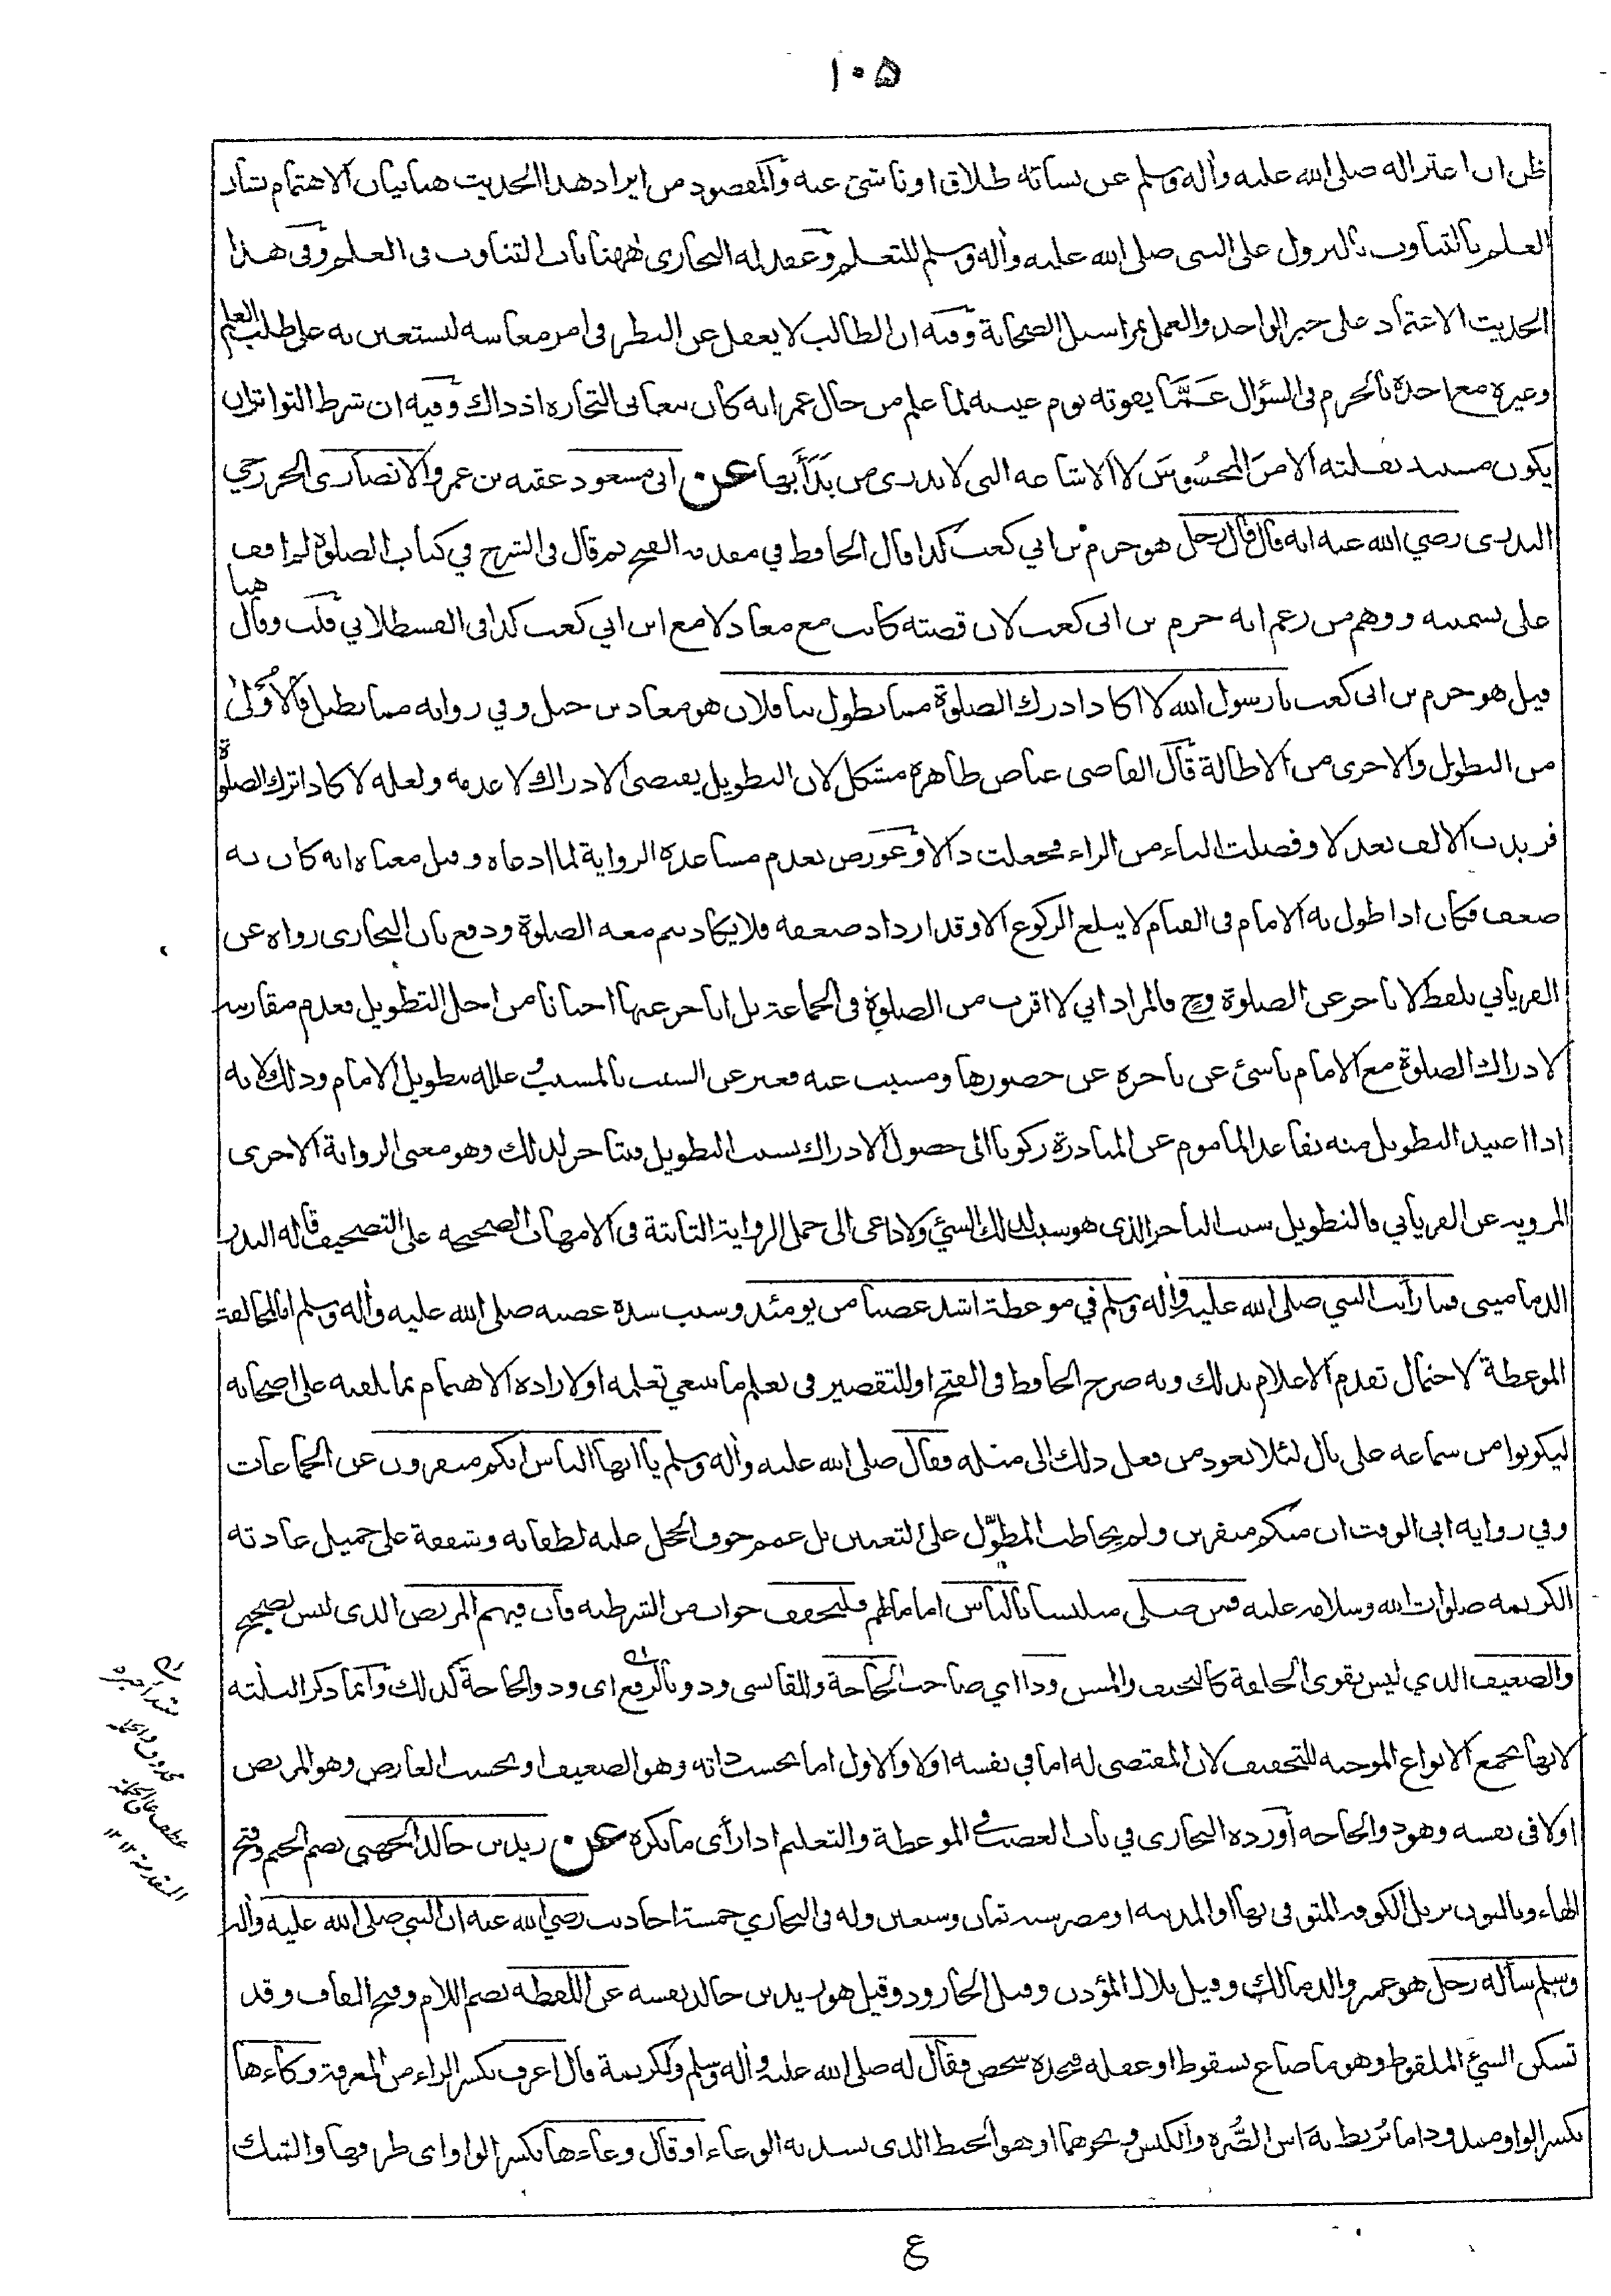 ١٠٥
ظن ان اعتزاله صلى الله عليه وآله وسلم عن نسائه طلاق او ناشئ عنه والمقصود من ايراد هذا الحديث هنا بيان الاهتمام بشان
العلم بالتناوب بالنزول على النبي صلى الله عليه وآله وسلم للتعلم وعقد له البخاري ههنا باب التناوب في العلم وفي هذا
الحديث الاعتماد على خبر الواحد والعمل بمراسيل الصحابة وفيه ان الطالب لا يغفل عن النظر في امر معاشه ليستعين به على طلب العلم
وغيره مع اخذه بالحزم في السؤال عمّا يفوته يوم غيبته لما علم من حال عمر انه كان يتعانى التجارة اذ ذاك وفيه ان شرط التواتر ان
يكون مستند نقلته الامرَ المحسُوسَ لا الاشاعة التي لا يدرى من بَدَأَ بها عن ابي مسعود عقبة بن عمرو الانصاري الخزرجي
البدري رضي الله عنه انه قال قال رجل هو حزم بن ابي كعب كذا قال الحافظ في مقدمة الفتح ثم قال في الشرح في كتاب الصلوة لم اقف
على تسميته ووهم من زعم انه حزم بن ابي كعب لان قصته كانت مع معاذ لا مع ابن ابي كعب كذا في القسطلاني قلت وقال هنا
قيل هو حزم بن ابي كعب يا رسول الله لا اكاد ادرك الصلوة مما يطول بنا فلان هو معاذ بن جبل وفي رواية مما يطيل فالاولى
من التطويل والاخرى من الاطالة قال القاضي عياض ظاهره مشكل لان التطويل يقتضي الادراك لا عدمه ولعله لا كاد اترك الصلوة
فزيدت الالف بعد لا وفصلت التاء من الراء فجعلت دالا وعورض بعدم مساعدة الرواية لما ادعاه وقيل معناه انه كان به
ضعف فكان اذا طول به الامام في القيام لا يبلغ الركوع الا وقد ازداد ضعفه فلا يكاد يتم معه الصلوة ودفع بان البخاري رواه عن
الفريابي بلفظ لاتأخر عن الصلوة وح فالمراد اني لا اقرب من الصلوة في الجماعة بل اتأخر عنها احيانا من اجل التطويل فعدم مقاربته
لادراك الصلوة مع الامام ناشئ عن تاخره عن حضورها ومسبب عنه فعبر عن السبب بالمسبب وعلله بتطويل الامام وذلك لانه
اذا اعتيد التطويل منه تقاعد الماموم عن المبادرة ركونا الى حصول الادراك بسبب التطويل فيتاخر لذلك وهو معنى الرواية الاخرى
المروية عن الفريابي فالتطويل سبب التاخر الذي هو سبب لذلك الشيء ولا داعي الى حمل الرواية الثابتة في الامهات الصحيحة على التصحيف قاله البدر
الدماميني فما رأيت النبي صلى الله عليه وآله وسلم في موعظة اشد غضبا من يومئذ وسبب شدة غضبه صلى الله عليه وآله وسلم اما لمخالفة
الموعظة لاحتمال تقدم الاعلام بذلك وبه صرح الحافظ في الفتح او للتقصير في تعلم ما ينبغي تعلمه او لارادة الاهتمام بما يلقيه على اصحابه
ليكونوا من سماعه على بال لئلا يعود من فعل ذلك الى مثله فقال صلى الله عليه وآله وسلم يا ايها الناس انكم منفرون عن الجماعات
وفي رواية ابي الوقت ان منكم منفرين ولم يخاطب المطوّل على التعيين بل عمم خوف الخجل عليه لطفا به وشفقة على جميل عادته
الكريمة صلوات الله وسلامه عليه فمن صلى متلبسا بالناس اماما لهم فليخفف جواب من الشرطية فان فيهم المريض الذي ليس بصحيح
والضعيف الذي ليس بقوي الخلقة كالنحيف والمسن وذا اي صاحب الحاجة وللقابسي وذو بالرفع اي وذو الحاجة كذلك وانما ذكر الثلثة
لانها تجمع الانواع الموجبة للتخفيف لان المقتضي له اما في نفسه اولا والاول اما بحسب ذاته وهو الضعيف او بحسب العارض وهو المريض
اولا في نفسه وهو ذو الحاجة أورده البخاري في باب الغضب في الموعظة والتعليم اذا رأى ما يكره عن زيد بن خالد الجهني بضم الجيم وفتح
الهاء وبالنون نزيل الكوفة المتوفى بها او المدينة او مصر سنة ثمان وسبعين وله في البخاري خمسة احاديث رضي الله عنه ان النبي صلى الله عليه وآله
وسلم سأله رجل هو عمير والد مالك وقيل بلال المؤذن وقيل الجارود وقيل هو زيد بن خالد نفسه عن اللقطة بضم اللام وفتح القاف وقد
تسكن الشيء الملقوط وهو ما ضاع بسقوط او غفلة فيجده شخص فقال له صلى الله عليه وآله وسلم ولكريمة قال اعرف بكسر الراء من المعرفة وكاءها
بكسر الواو ممدودا ما تُربط به رأس الصُّرة والكيس ونحوهما او هو الخيط الذي يشد به الوعاء او قال وعاءها بكسر الواو اي ظرفها والشك
محذوف والجملة
عطف على الجملة
المتقدمة ١٢
ع